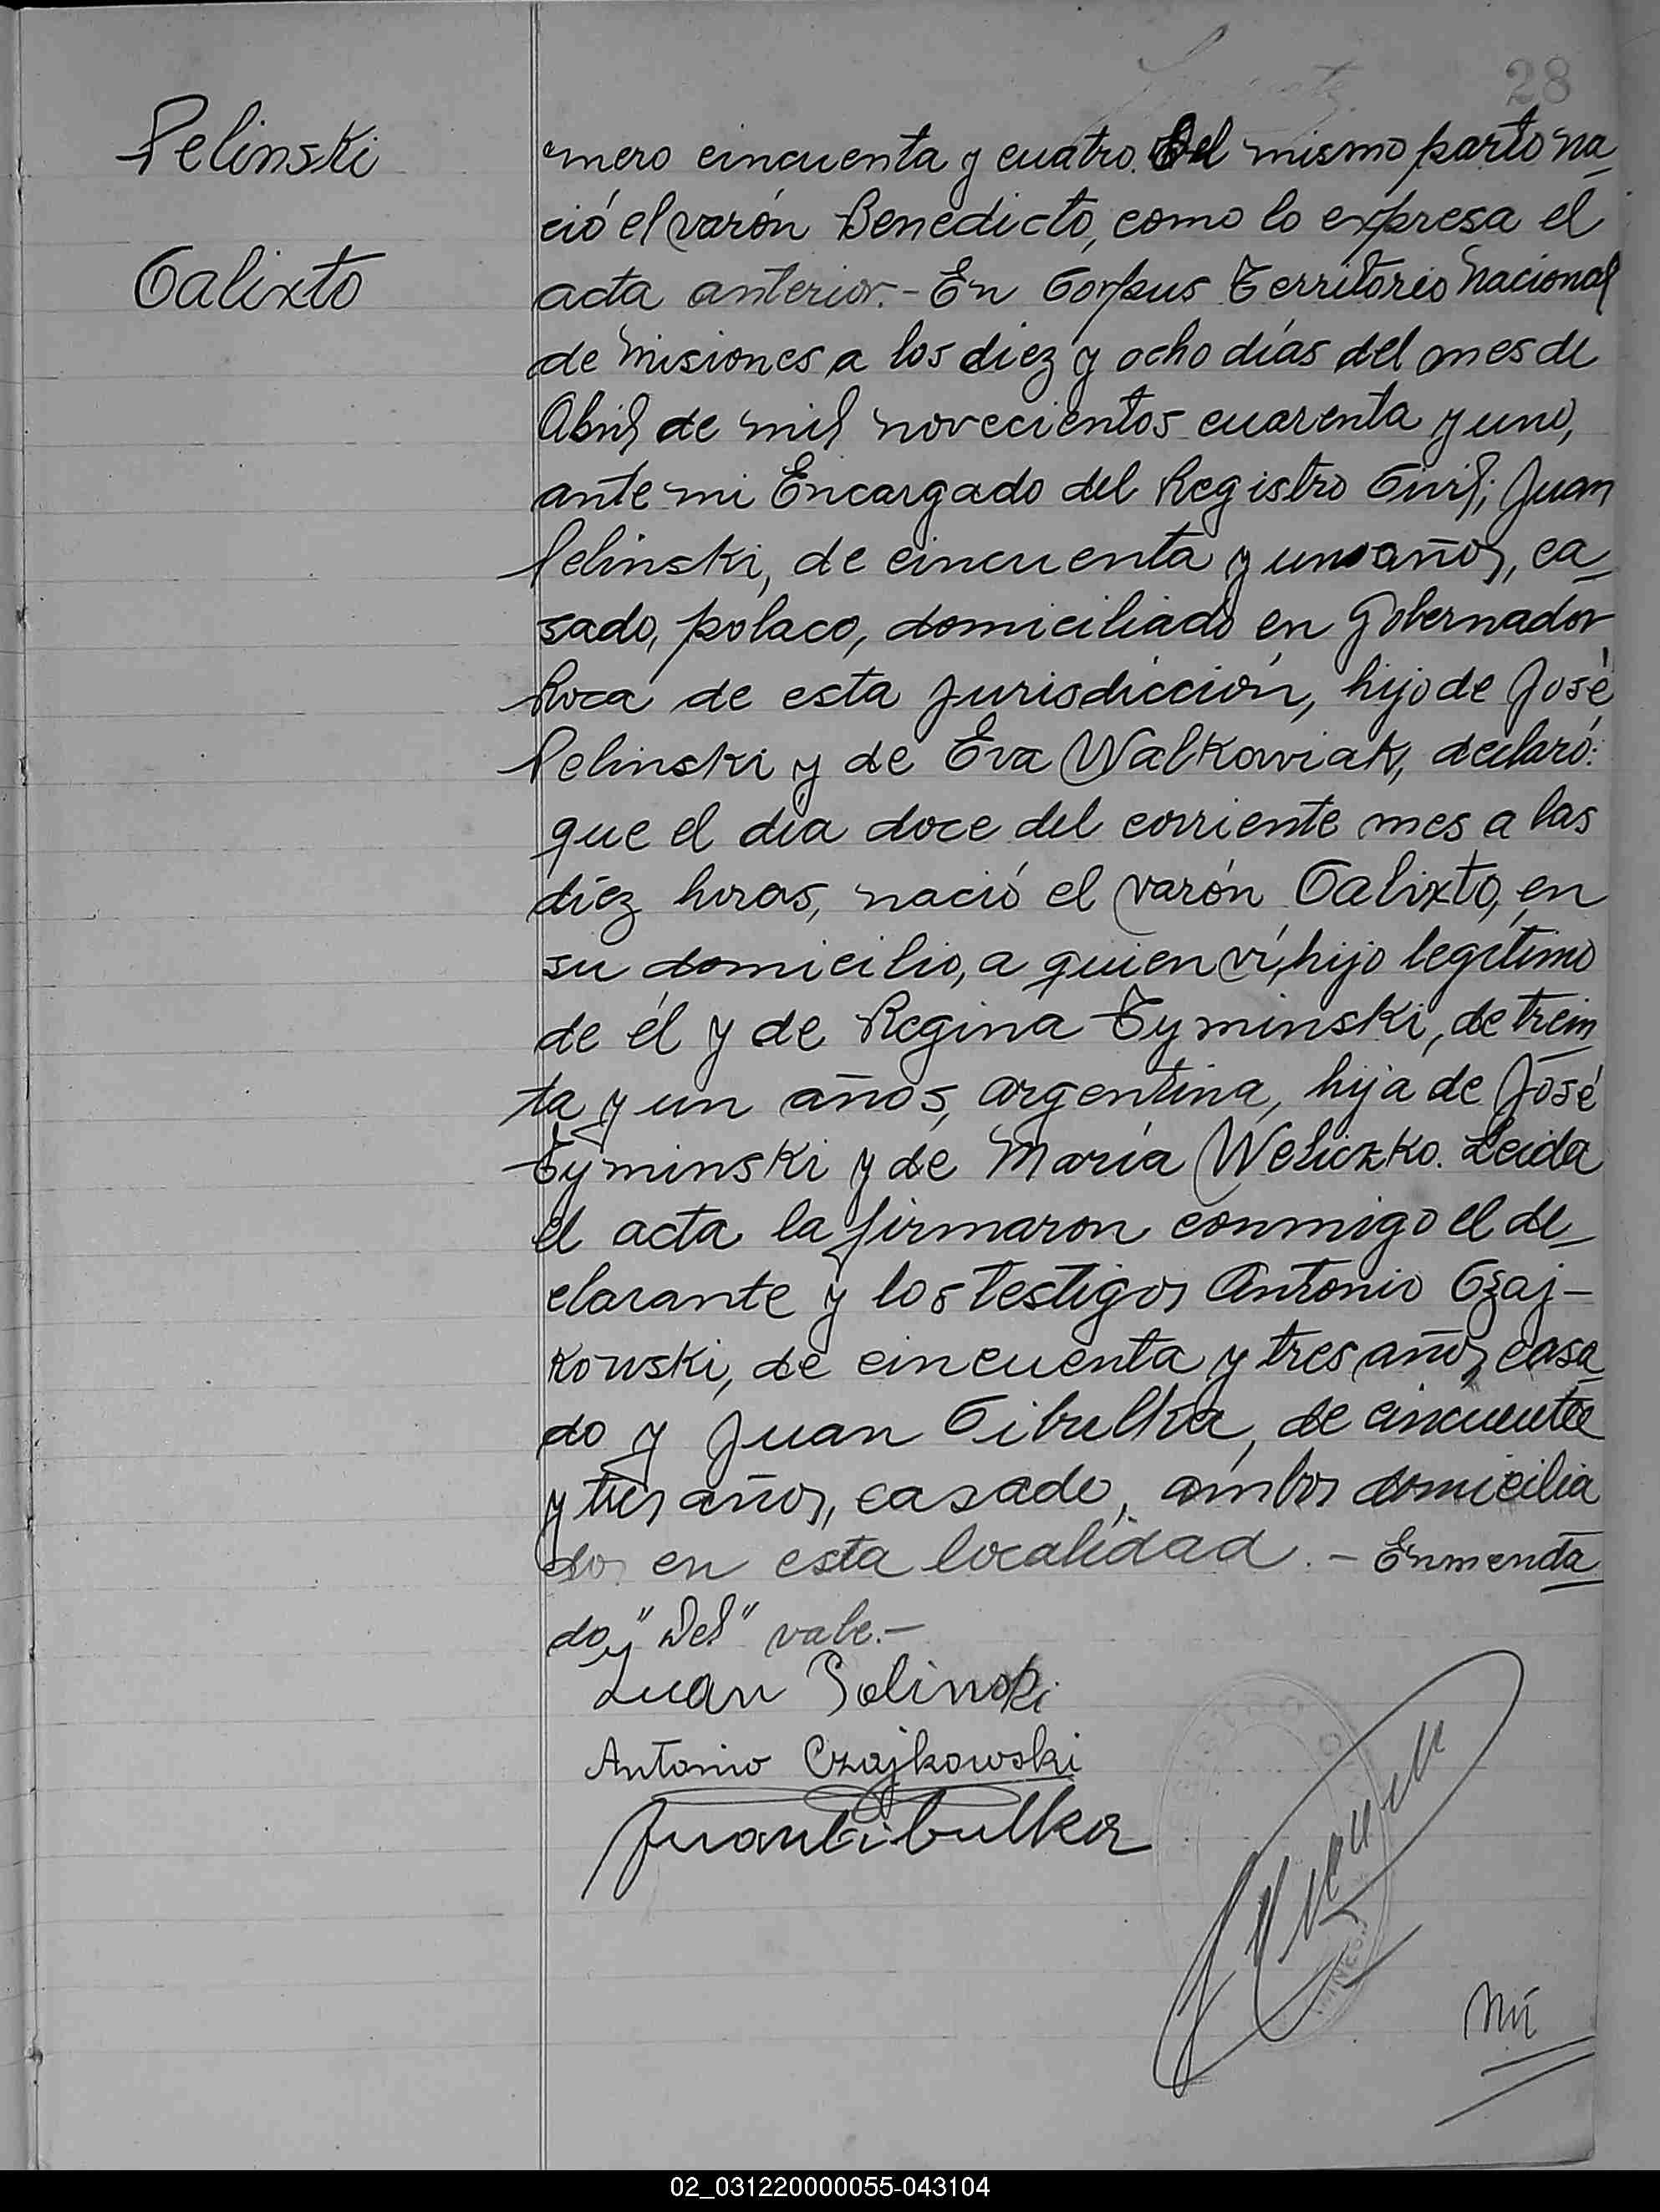 28
Pelinski
Calixto
mero cincuenta y cuatro. Del mismo parto na-
ció el varón Benedicto, como lo expresa el
acta anterior.- En Corpus Territorio Nacional
de Misiones a los diez y ocho días del mes de
Abril de mil novecientos cuarenta y uno,
ante mi Encargado del Registro Civil; Juan
Pelinski, de cincuenta y uno años, ca-
sado, polaco, domiciliado en Gobernador
Roca de esta jurisdicción, hijo de José
Pelinski y de Eva Walkowiak, declaró:
que el día doce del corriente mes a las
diez horas, nació el varón Calixto, en
su domicilio, a quien ví, hijo legítimo
de él y de Regina Tyminski, de trein-
ta y un años, argentina, hija de José
Tyminski y de María Weliczko. Leida
el acta la firmaron conmigo el de-
clarante y los testigos Antonio Czaj-
kowski, de cincuenta y tres años, casa-
do y Juan Cibulka, de cincuenta
y tres años, casado, ambos domicilia
dos en esta localidad.- Enmenda-
do, "Del" vale.-
Juan Pelinski
Antonio Czajkowski
Juan Cibulka
02_031220000055-043104